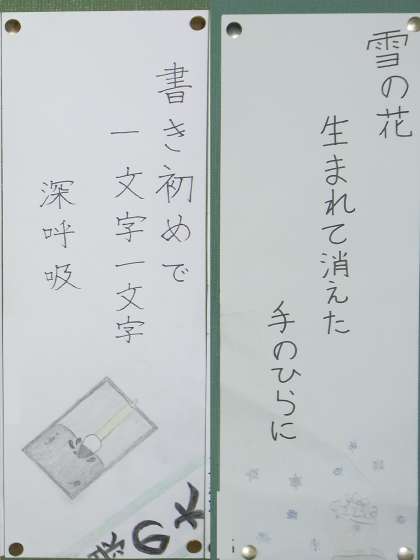 雪の花
生まれて消えた
手のひらに
書き初めで
一文字一文字
深呼吸